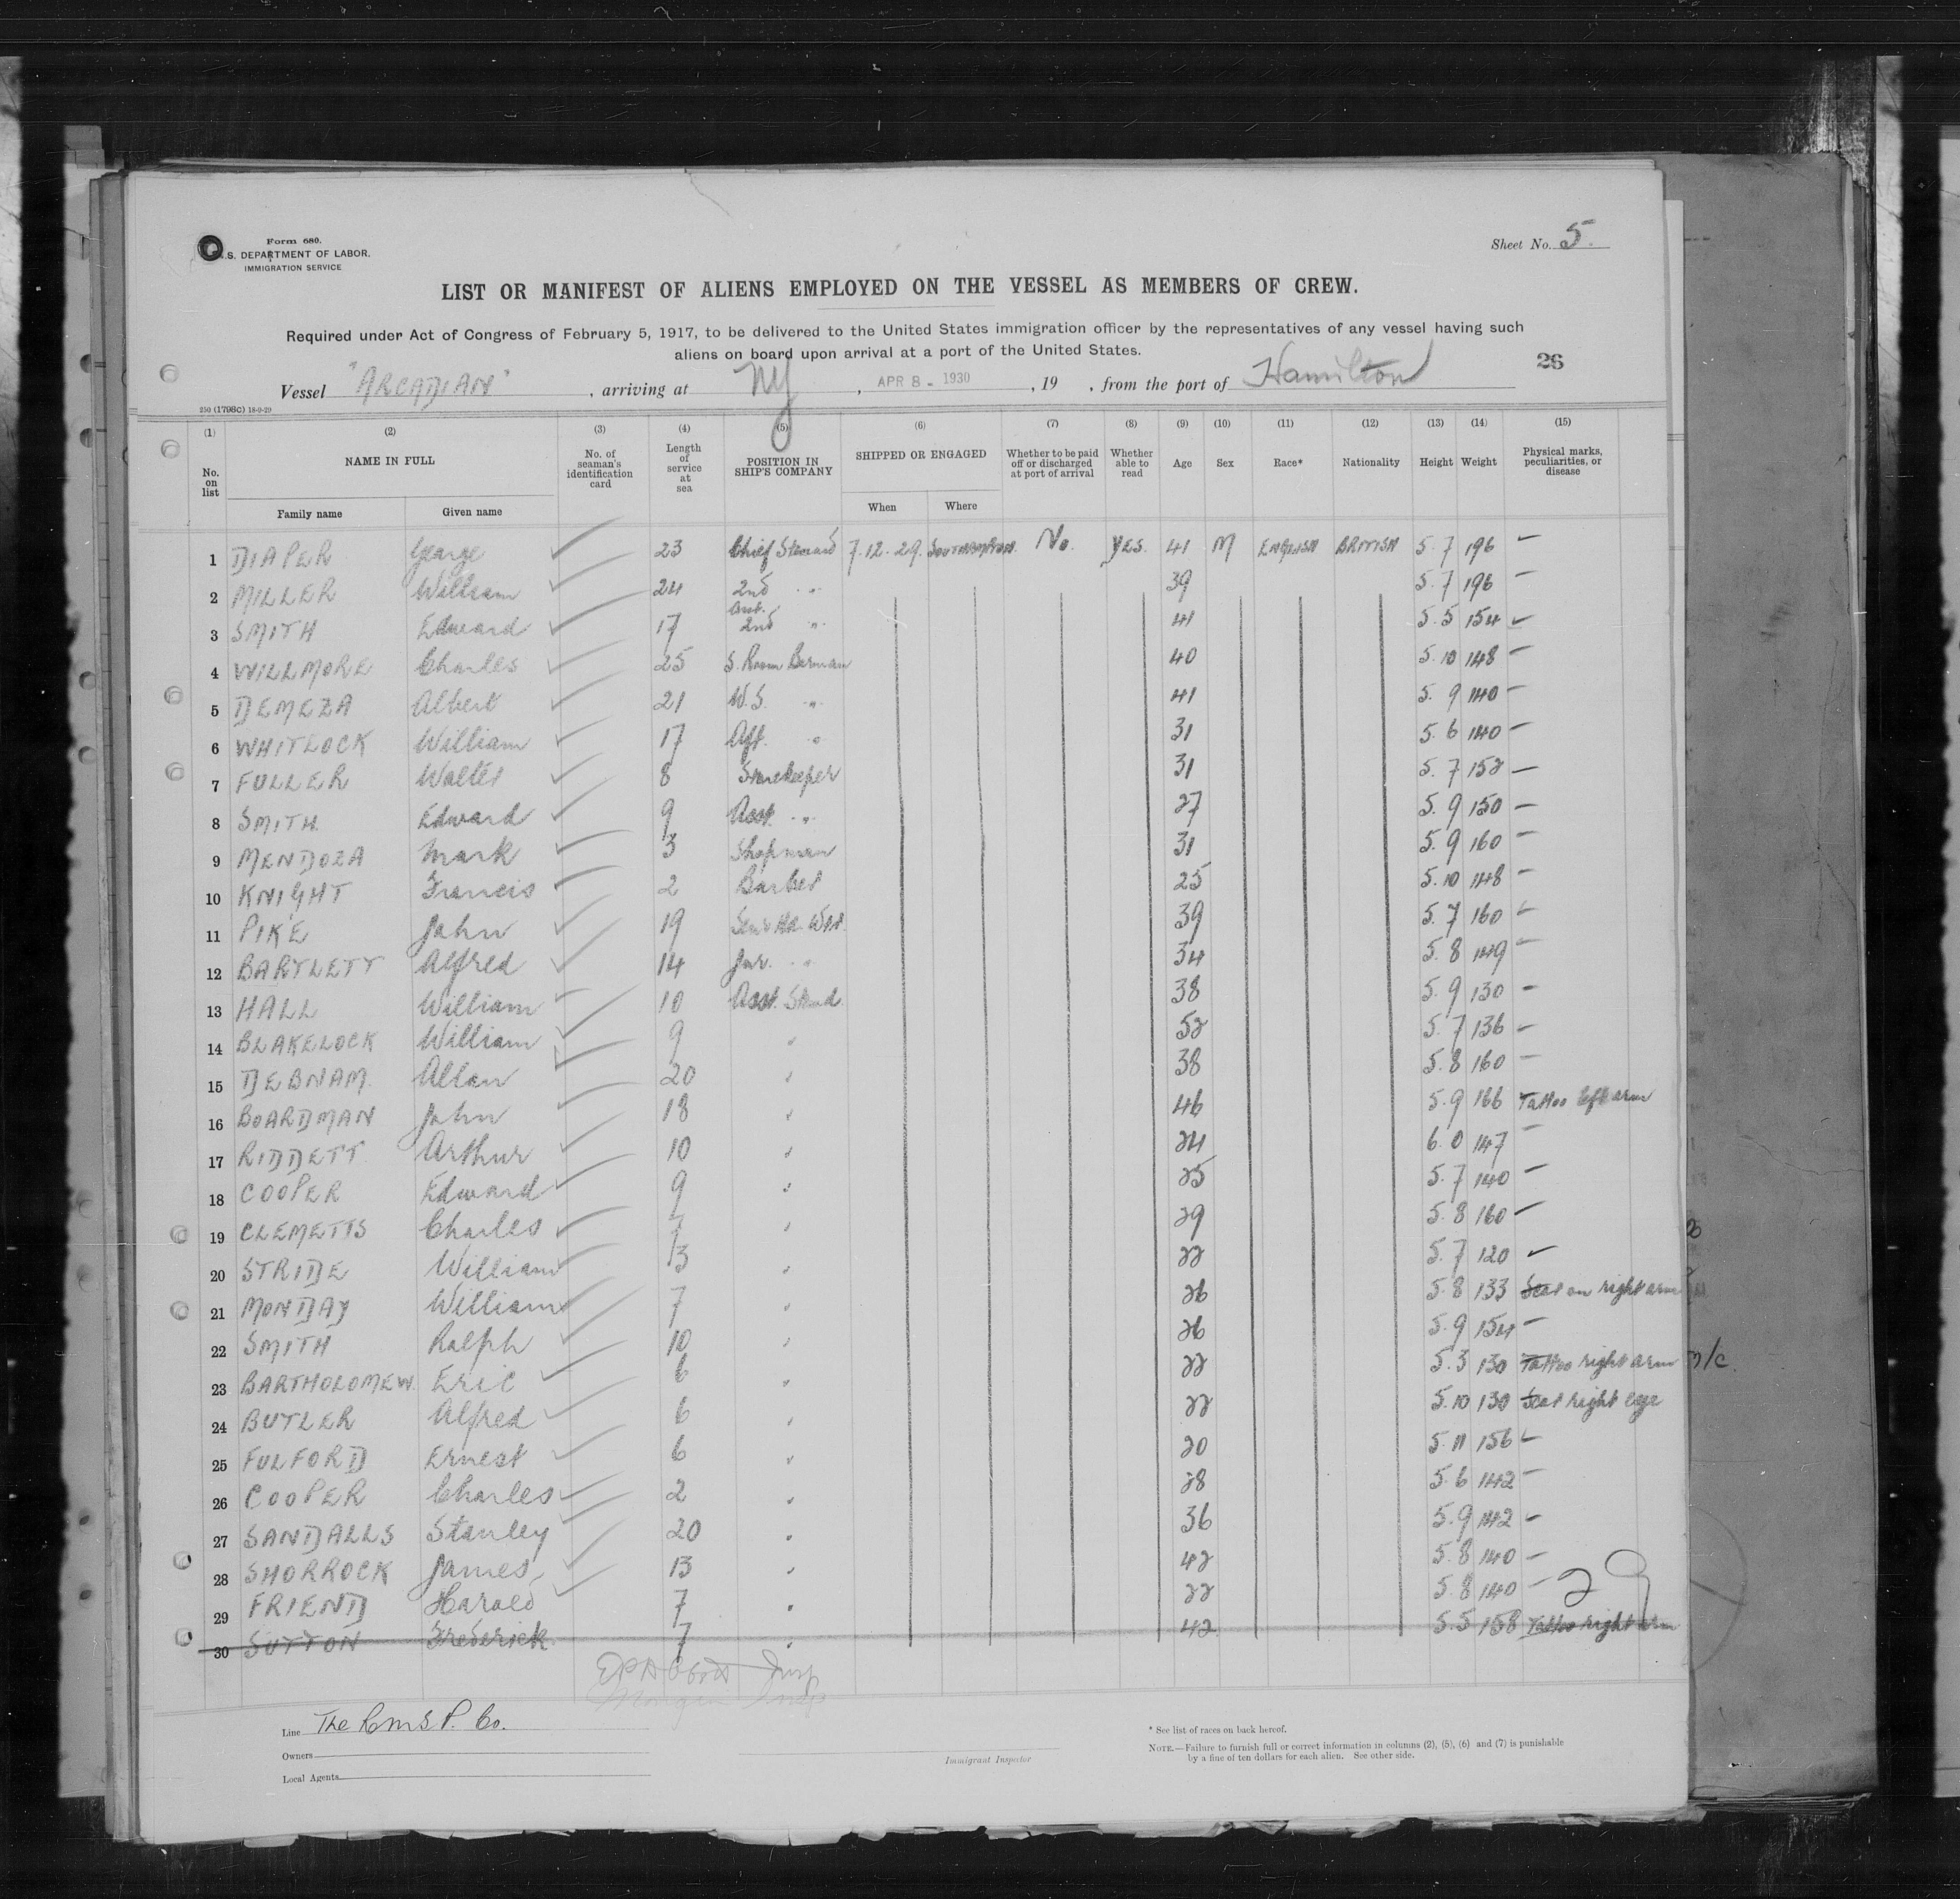 Form 680.
U.S. DEPARTMENT OF LABOR.
IMMIGRATION SERVICE
Sheet No. 5.
LIST OR MANIFEST OF ALIENS EMPLOYED ON THE VESSEL AS MEMBERS OF CREW.
Required under Act of Congress of February 5, 1917, to be delivered to the United States immigration officer by the representatives of any vessel having such
aliens on board upon arrival at a port of the United States.
26
Vessel "ARCADIAN" , arriving at NY , APR 8 - 1930 , 19 , from the port of Hamilton
250 (1798c) 18-9-29
(1) (2) (3) (4) (5) (6) (7) (8) (9) (10) (11) (12) (13) (14) (15)
No. on list NAME IN FULL No. of seaman's identification card Length of service at sea POSITION IN SHIP'S COMPANY SHIPPED OR ENGAGED Whether to be paid off or discharged at port of arrival Whether able to read Age Sex Race* Nationality Height Weight Physical marks, peculiarities, or disease
Family name Given name When Where
1 DIAPER George 23 Chief Steward 7.12.29. SOUTHAMPTON No. YES. 41 M ENGLISH BRITISH 5.7 196 —
2 MILLER William 24 2nd " 39 5.7 196 —
3 SMITH Edward 17 Asst. 2nd " 41 5.5 154 —
4 WILLMORE Charles 25 S. Room Barman 40 5.10 148 —
5 DEMEZA Albert 21 W.S. " 41 5.9 140 —
6 WHITLOCK William 17 Aft. " 31 5.6 140 —
7 FULLER Walter 8 Storekeeper 31 5.7 152 —
8 SMITH Edward 9 Asst. " 27 5.9 150 —
9 MENDOZA Mark 3 Shopman 31 5.9 160 —
10 KNIGHT Francis 2 Barber 25 5.10 148 —
11 PIKE John 19 39 5.7 160 —
12 BARTLETT Alfred 14 Jnr. " 34 5.8 149 —
13 HALL William 10 Asst. Stwd 38 5.9 130 —
14 BLAKELOCK William 9 " 52 5.7 136 —
15 DEBNAM. Allan 20 " 38 5.8 160 —
16 BOARDMAN John 18 " 46 5.9 166 Tattoo left arm
17 RIDDETT Arthur 10 " 24 6.0 147 —
18 COOPER Edward 9 " 25 5.7 140 —
19 CLEMETTS Charles 7 " 29 5.8 160 —
20 STRIDE William 3 " 22 5.7 120 —
21 MONDAY William 7 " 26 5.8 133 Scar on right arm
22 SMITH Ralph 10 " 26 5.9 154 —
23 BARTHOLOMEW. Eric 6 " 22 5.3 130 Tattoo right arm
24 BUTLER Alfred 6 " 22 5.10 130 Scar right eye
25 FULFORD Ernest 6 " 20 5.11 156 —
26 COOPER Charles 2 " 28 5.6 142 —
27 SANDALLS Stanley 20 " 36 5.9 142 —
28 SHORROCK James 13 " 42 5.8 140 —
29 FRIEND Harold 7 " 22 5.8 140 —
30 SUTTON Frederick 7 " 42 5.5 158 Tattoo right arm
29
Line The R.M.S.P. Co.
Owners
Local Agents
Immigrant Inspector
* See list of races on back hereof.
NOTE.—Failure to furnish full or correct information in columns (2), (5), (6) and (7) is punishable
by a fine of ten dollars for each alien. See other side.